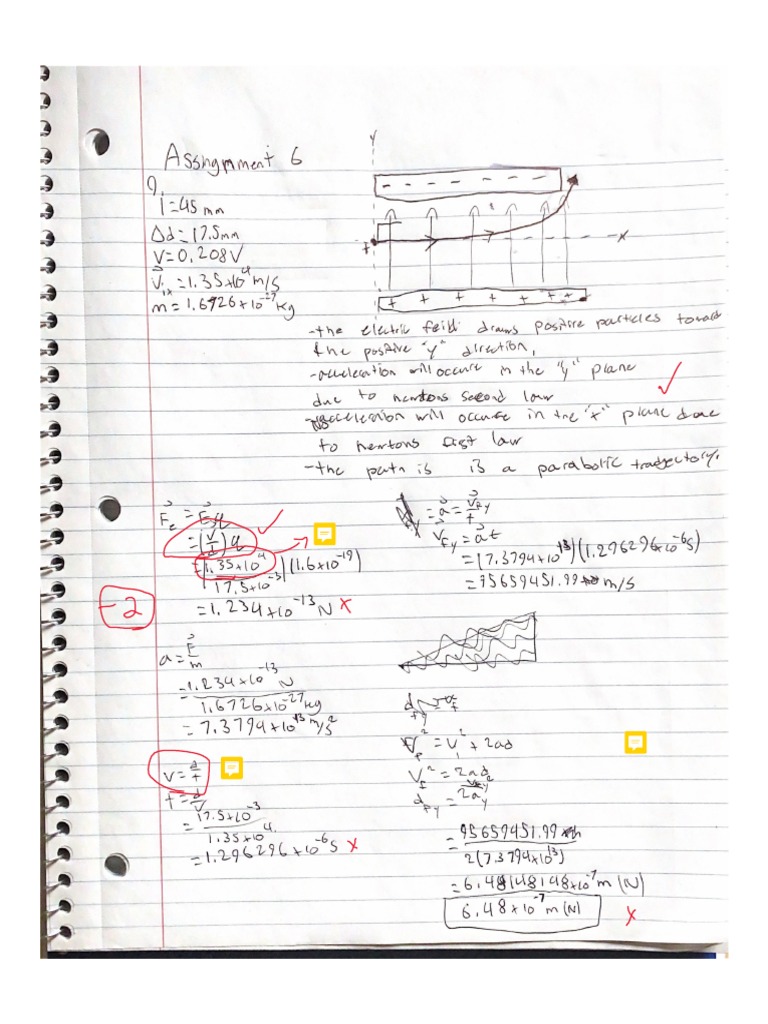 Assignment 6
Y
1.
l=45mm
Δd=17.5mm
V=0.208V
v⃗ix=1.35×10⁴m/s
m=1.6726×10⁻²⁷kg
- - - - - - -
+
x
+ + + + + + +
-the electric feild draws positive particles toward
the positive "y" direction,
-acceleration will occure in the "y" plane
due to newtons second law
-No acceleration will occure in the "x" plane due
to newtons first law
-the path is is a parabolic tradjectory.
F⃗e=E⃗q
=(V/d)q
=(1.35×10⁴/17.5×10⁻³)(1.6×10⁻¹⁹)
=1.234×10⁻¹³N
-2
a=F⃗/m
=1.234×10⁻¹³N/1.6726×10⁻²⁷kg
=7.3794×10¹³m/s²
v=d/t
t=d/v
=17.5×10⁻³/1.35×10⁴
=1.296296×10⁻⁶s
=a⃗=v⃗fy/t
v⃗fy=a⃗t
=(7.3794×10¹³)(1.296296×10⁻⁶s)
=95659451.99 m/s
vf²=vi²+2ad
vf²=2ad
dfy=vfy²/2ay
=95659451.99/2(7.3794×10¹³)
=6.48148148×10⁻⁷m(N)
6.48×10⁻⁷m(N)